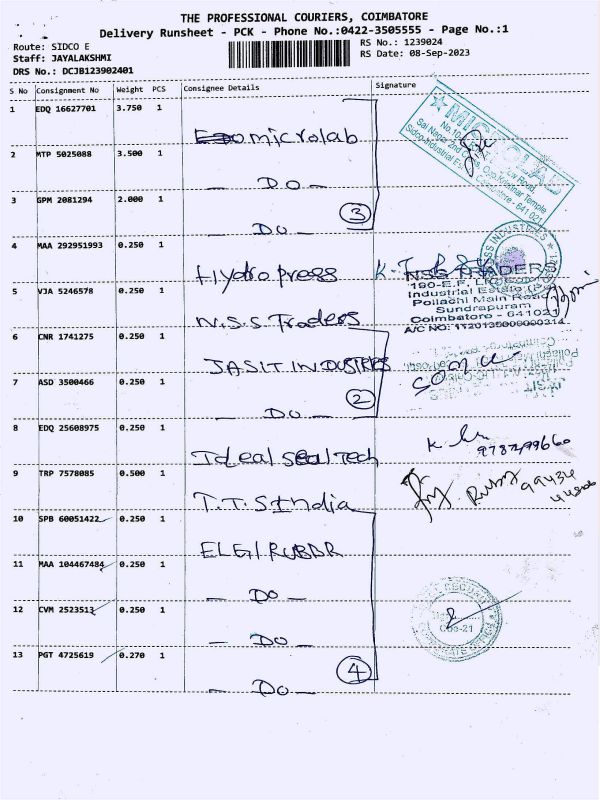 THE PROFESSIONAL COURIERS, COIMBATORE
Delivery Runsheet - PCK - Phone No.:0422-3505555 - Page No.:1
Route: SIDCO E
RS No.: 1239024
Staff: JAYALAKSHMI
RS Date: 08-Sep-2023
DRS No.: DCJB123902401
S No Consignment No Weight PCS Consignee Details Signature
1 EDQ 16627701 3.750 1 microlab
2 MTP 5025088 3.500 1 — Do —
3 GPM 2081294 2.000 1 — Do — 3
4 MAA 292951993 0.250 1 Hydropress
5 VJA 5246578 0.250 1 N.S.S Traders
6 CNR 1741275 0.250 1 JASIT INDUSTRIES
7 ASD 3500466 0.250 1 — Do — 2
8 EDQ 25608975 0.250 1 Ideal Seal Tech
9 TRP 7578085 0.500 1 T.T.S India
10 SPB 60051422 0.250 1 ELGI RUBBR
11 MAA 104467484 0.250 1 — Do —
12 CVM 2523513 0.250 1 — Do —
13 PGT 4725619 0.270 1 — Do — 4
MICROLAB
Coimbatore - 641 021
INDUSTRIES
NSS TRADERS
190-E.F,
Industrial Estate (Po)
Pollachi Main Road
Sundrapuram
Coimbatore - 641021
A/C NO: 1120135000000314
99434
Cbe-21